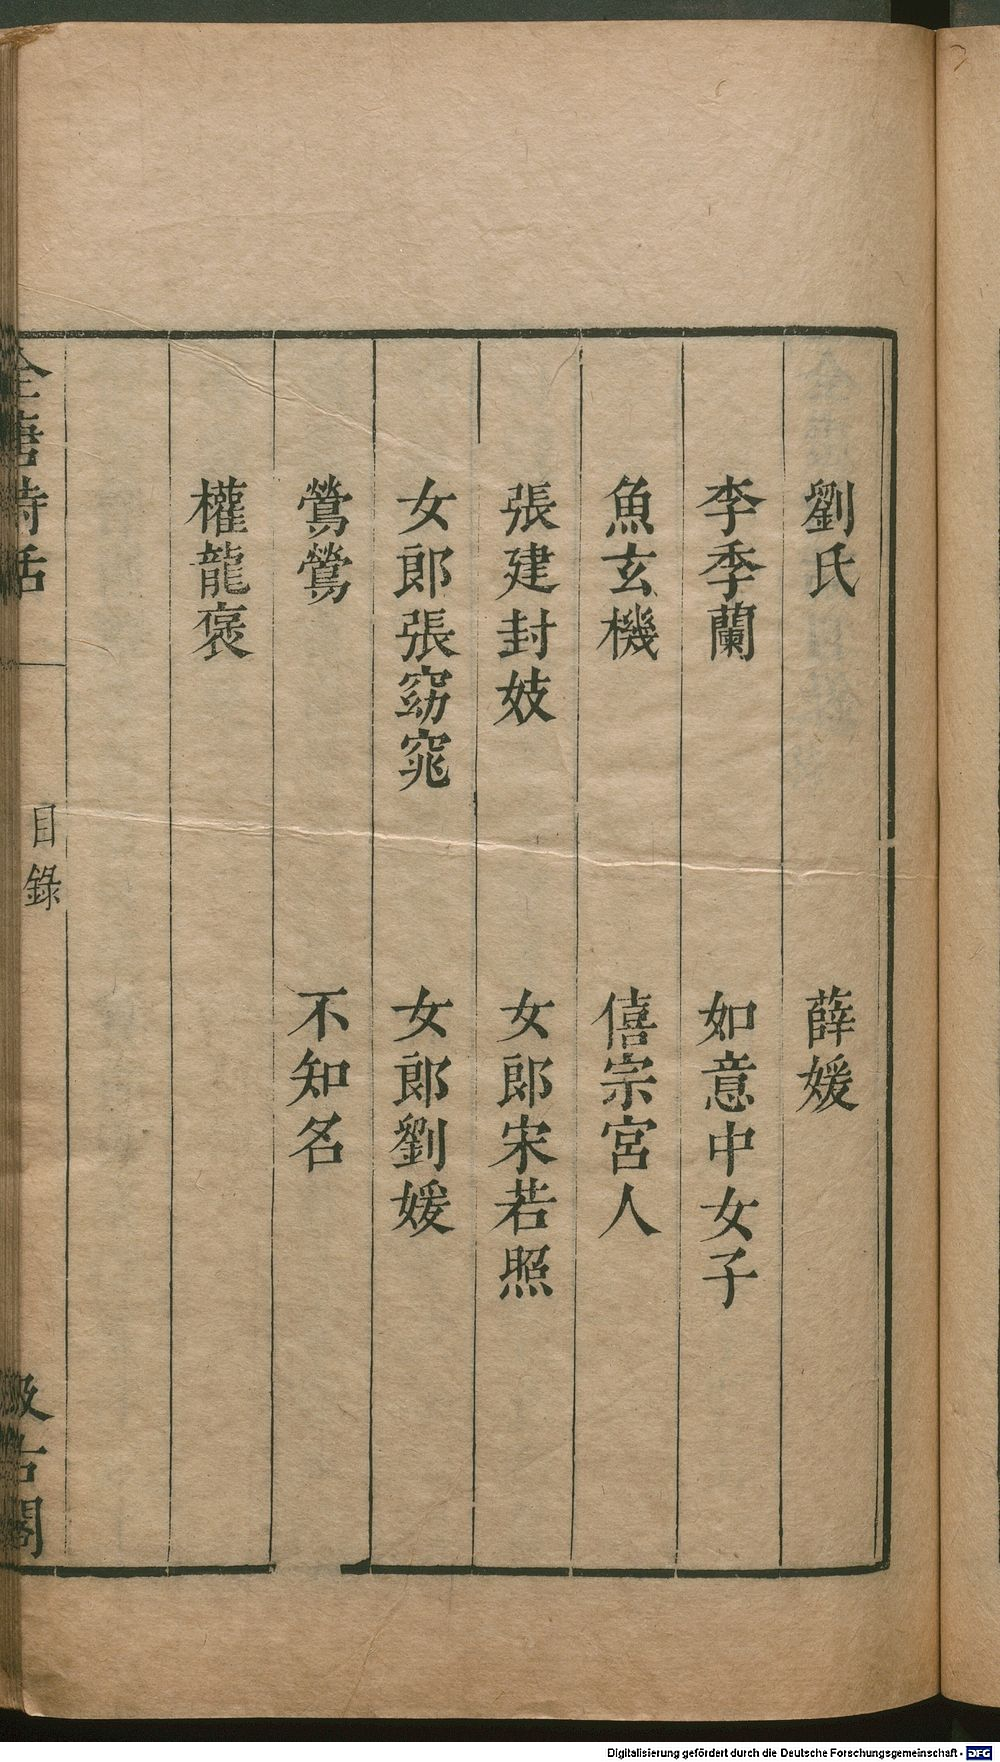 劉氏 薛媛
李季蘭 如意中女子
魚玄機 僖宗宮人
張建封妓 女郎宋若照
女郎張窈窕 女郎劉媛
鶯鶯 不知名
權龍褒
全唐詩話 目錄 汲古閣
Digitalisierung gefördert durch die Deutsche Forschungsgemeinschaft - DFG